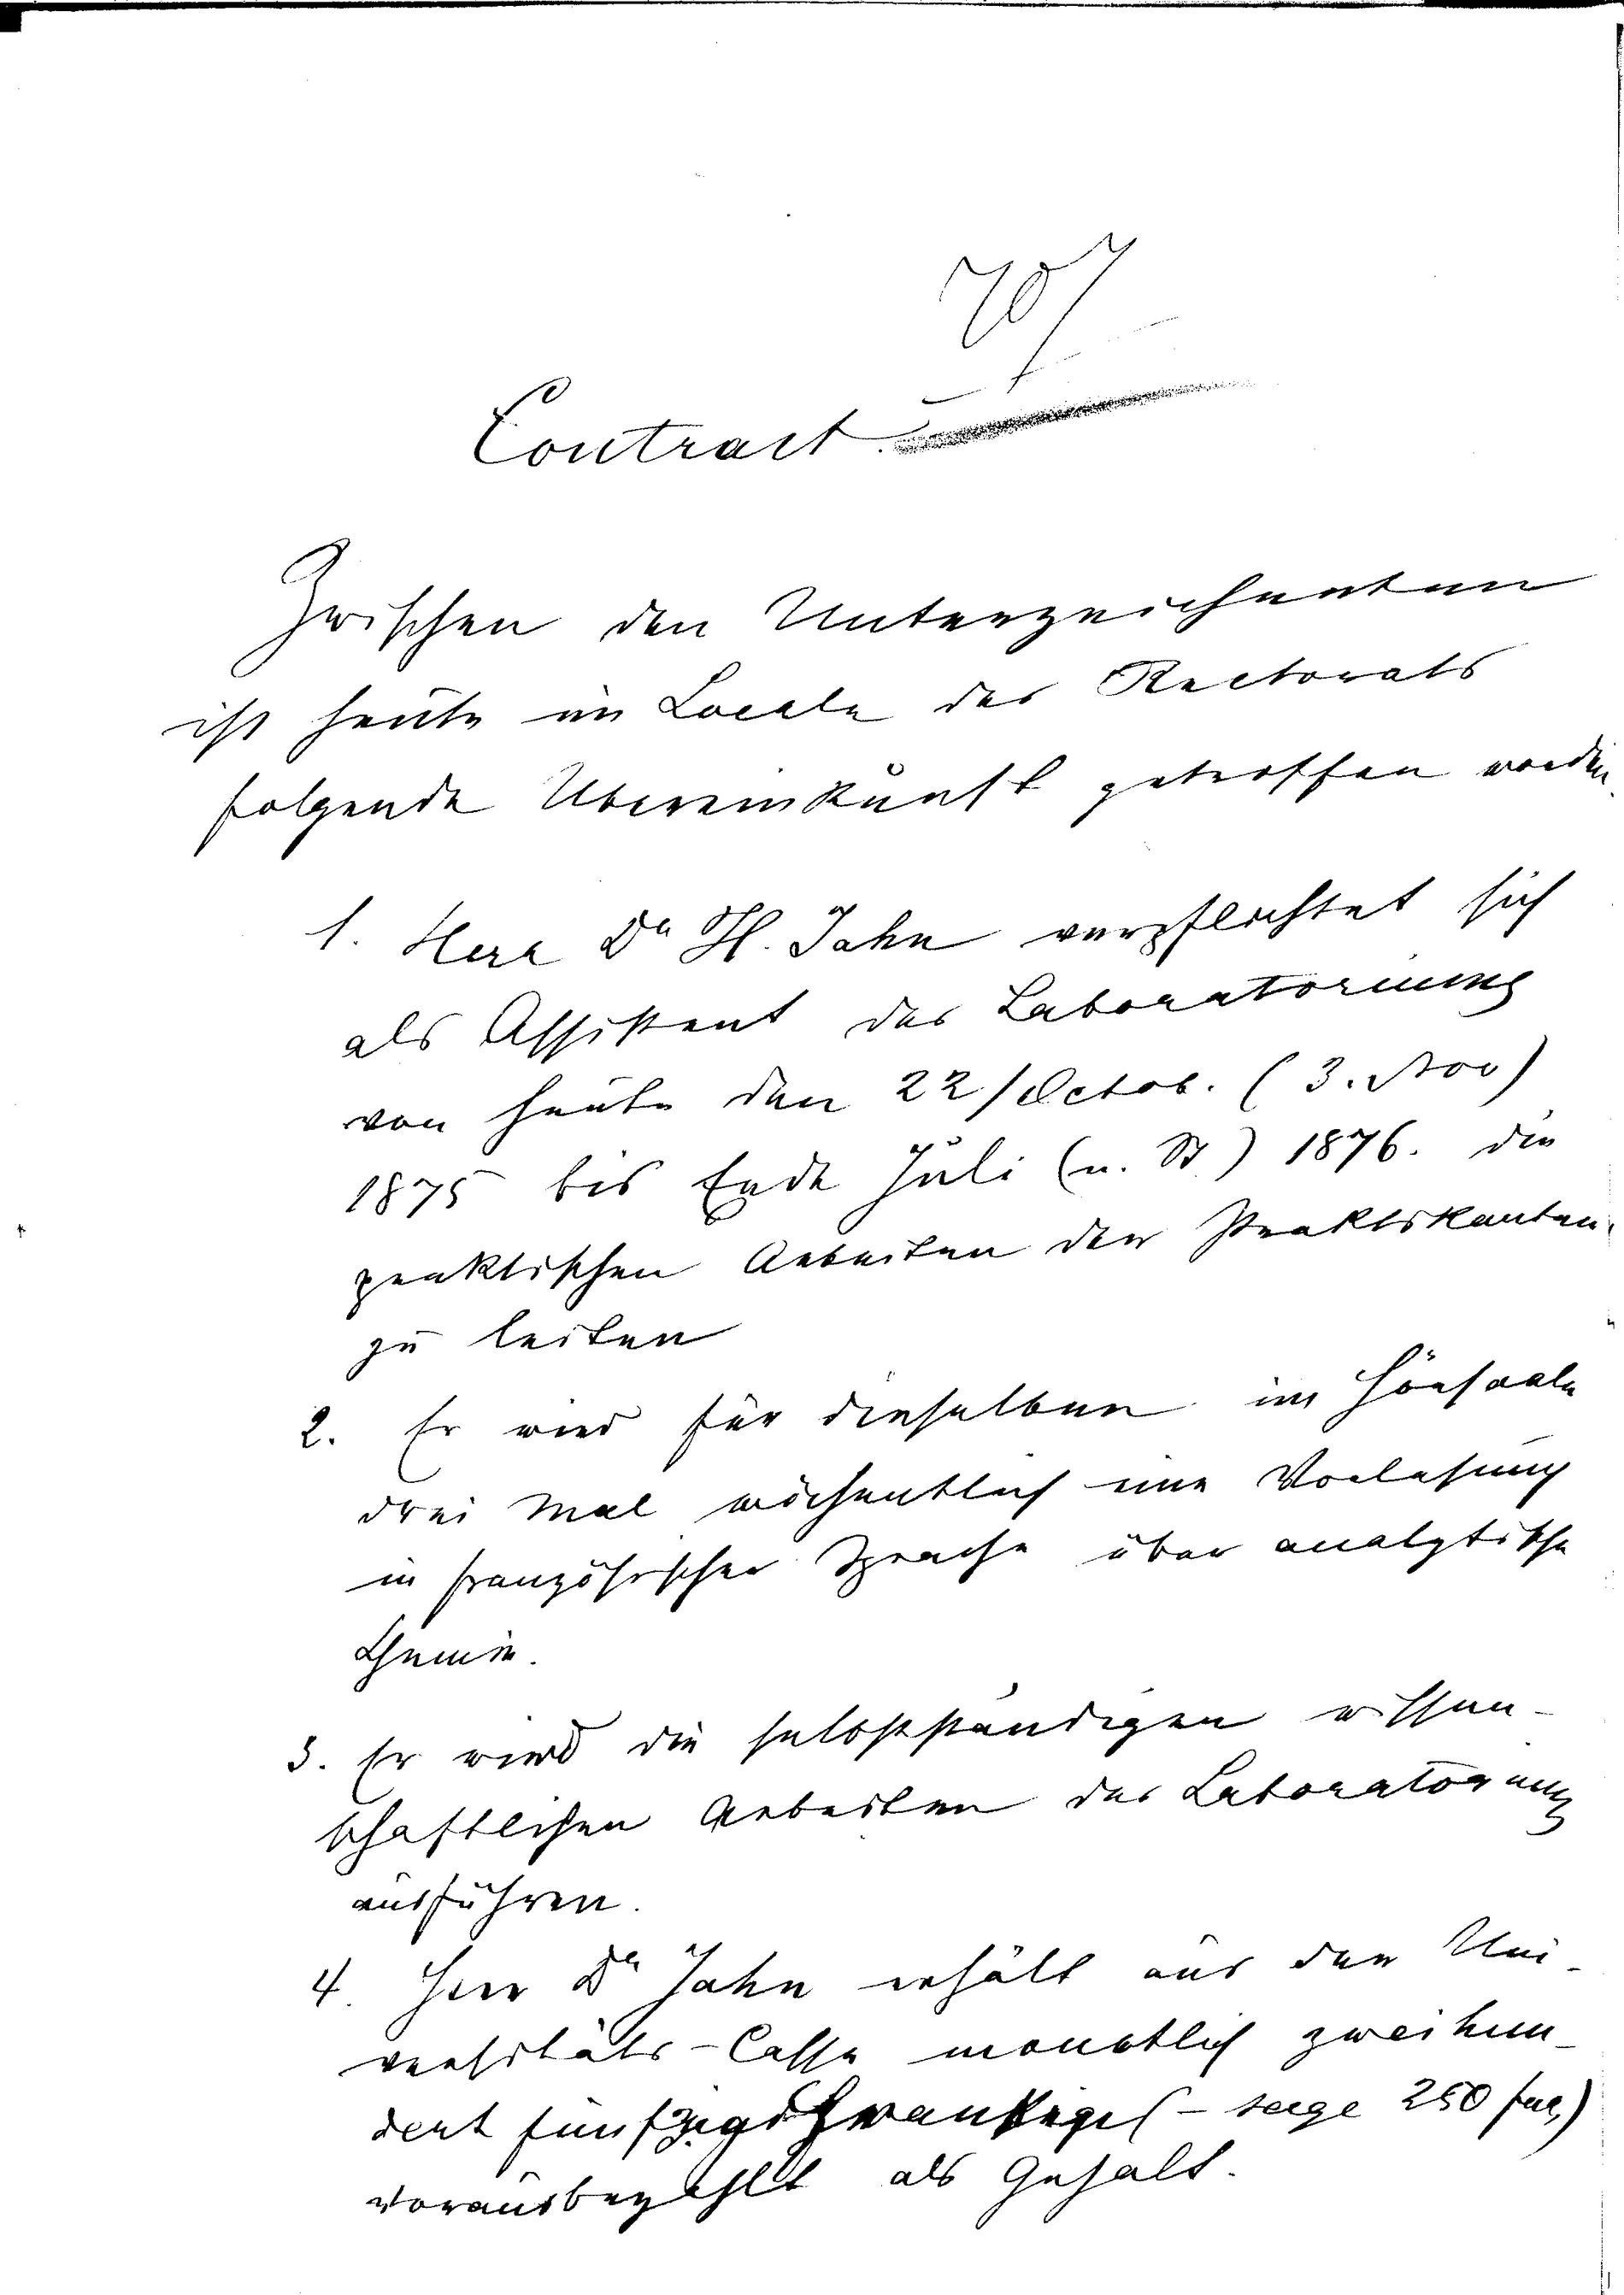 707
Contract
Zwischen den Unterzeichneten
ist heute im Locale des Rectorats
folgende Übereinkunft getroffen worden
1. Herr Dr H. Jahn verpflichtet sich
als Assistent des Laboratoriums
von heute den 22/Octob. (3. Nov)
1875 bis Ende Juli (n. St) 1876. die
praktischen Arbeiten der Praktikanten
zu leiten
2. Er wird für dieselben im Hörsaale
drei Mal wöchentlich eine Vorlesung
in französischer Sprache über analytische
Chemie.
3. Er wird die selbstständigen wissen-
schaftlichen Arbeiten des Laboratoriums
ausführen.
4. Herr Dr Jahn erhält aus der Uni-
versitäts-Casse monatlich zweihun-
dert fünfzig Franken (- sage 250 frs)
vorausbezahlt als Gehalt.